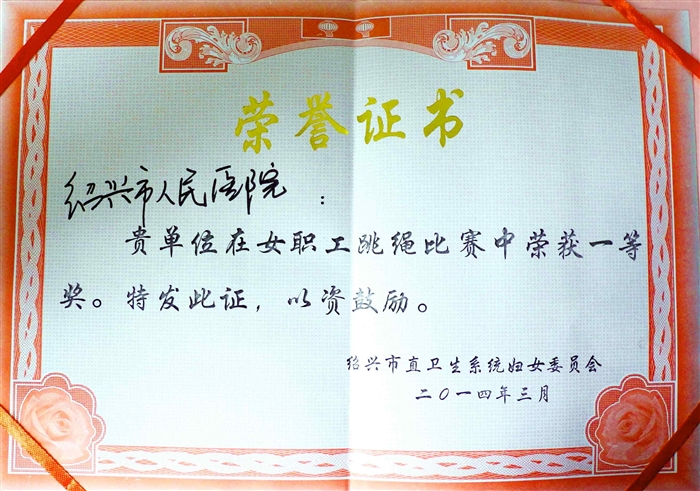 荣誉证书
绍兴市人民医院：
贵单位在女职工跳绳比赛中荣获一等
奖。特发此证，以资鼓励。
绍兴市直卫生系统妇女委员会
二〇一四年三月